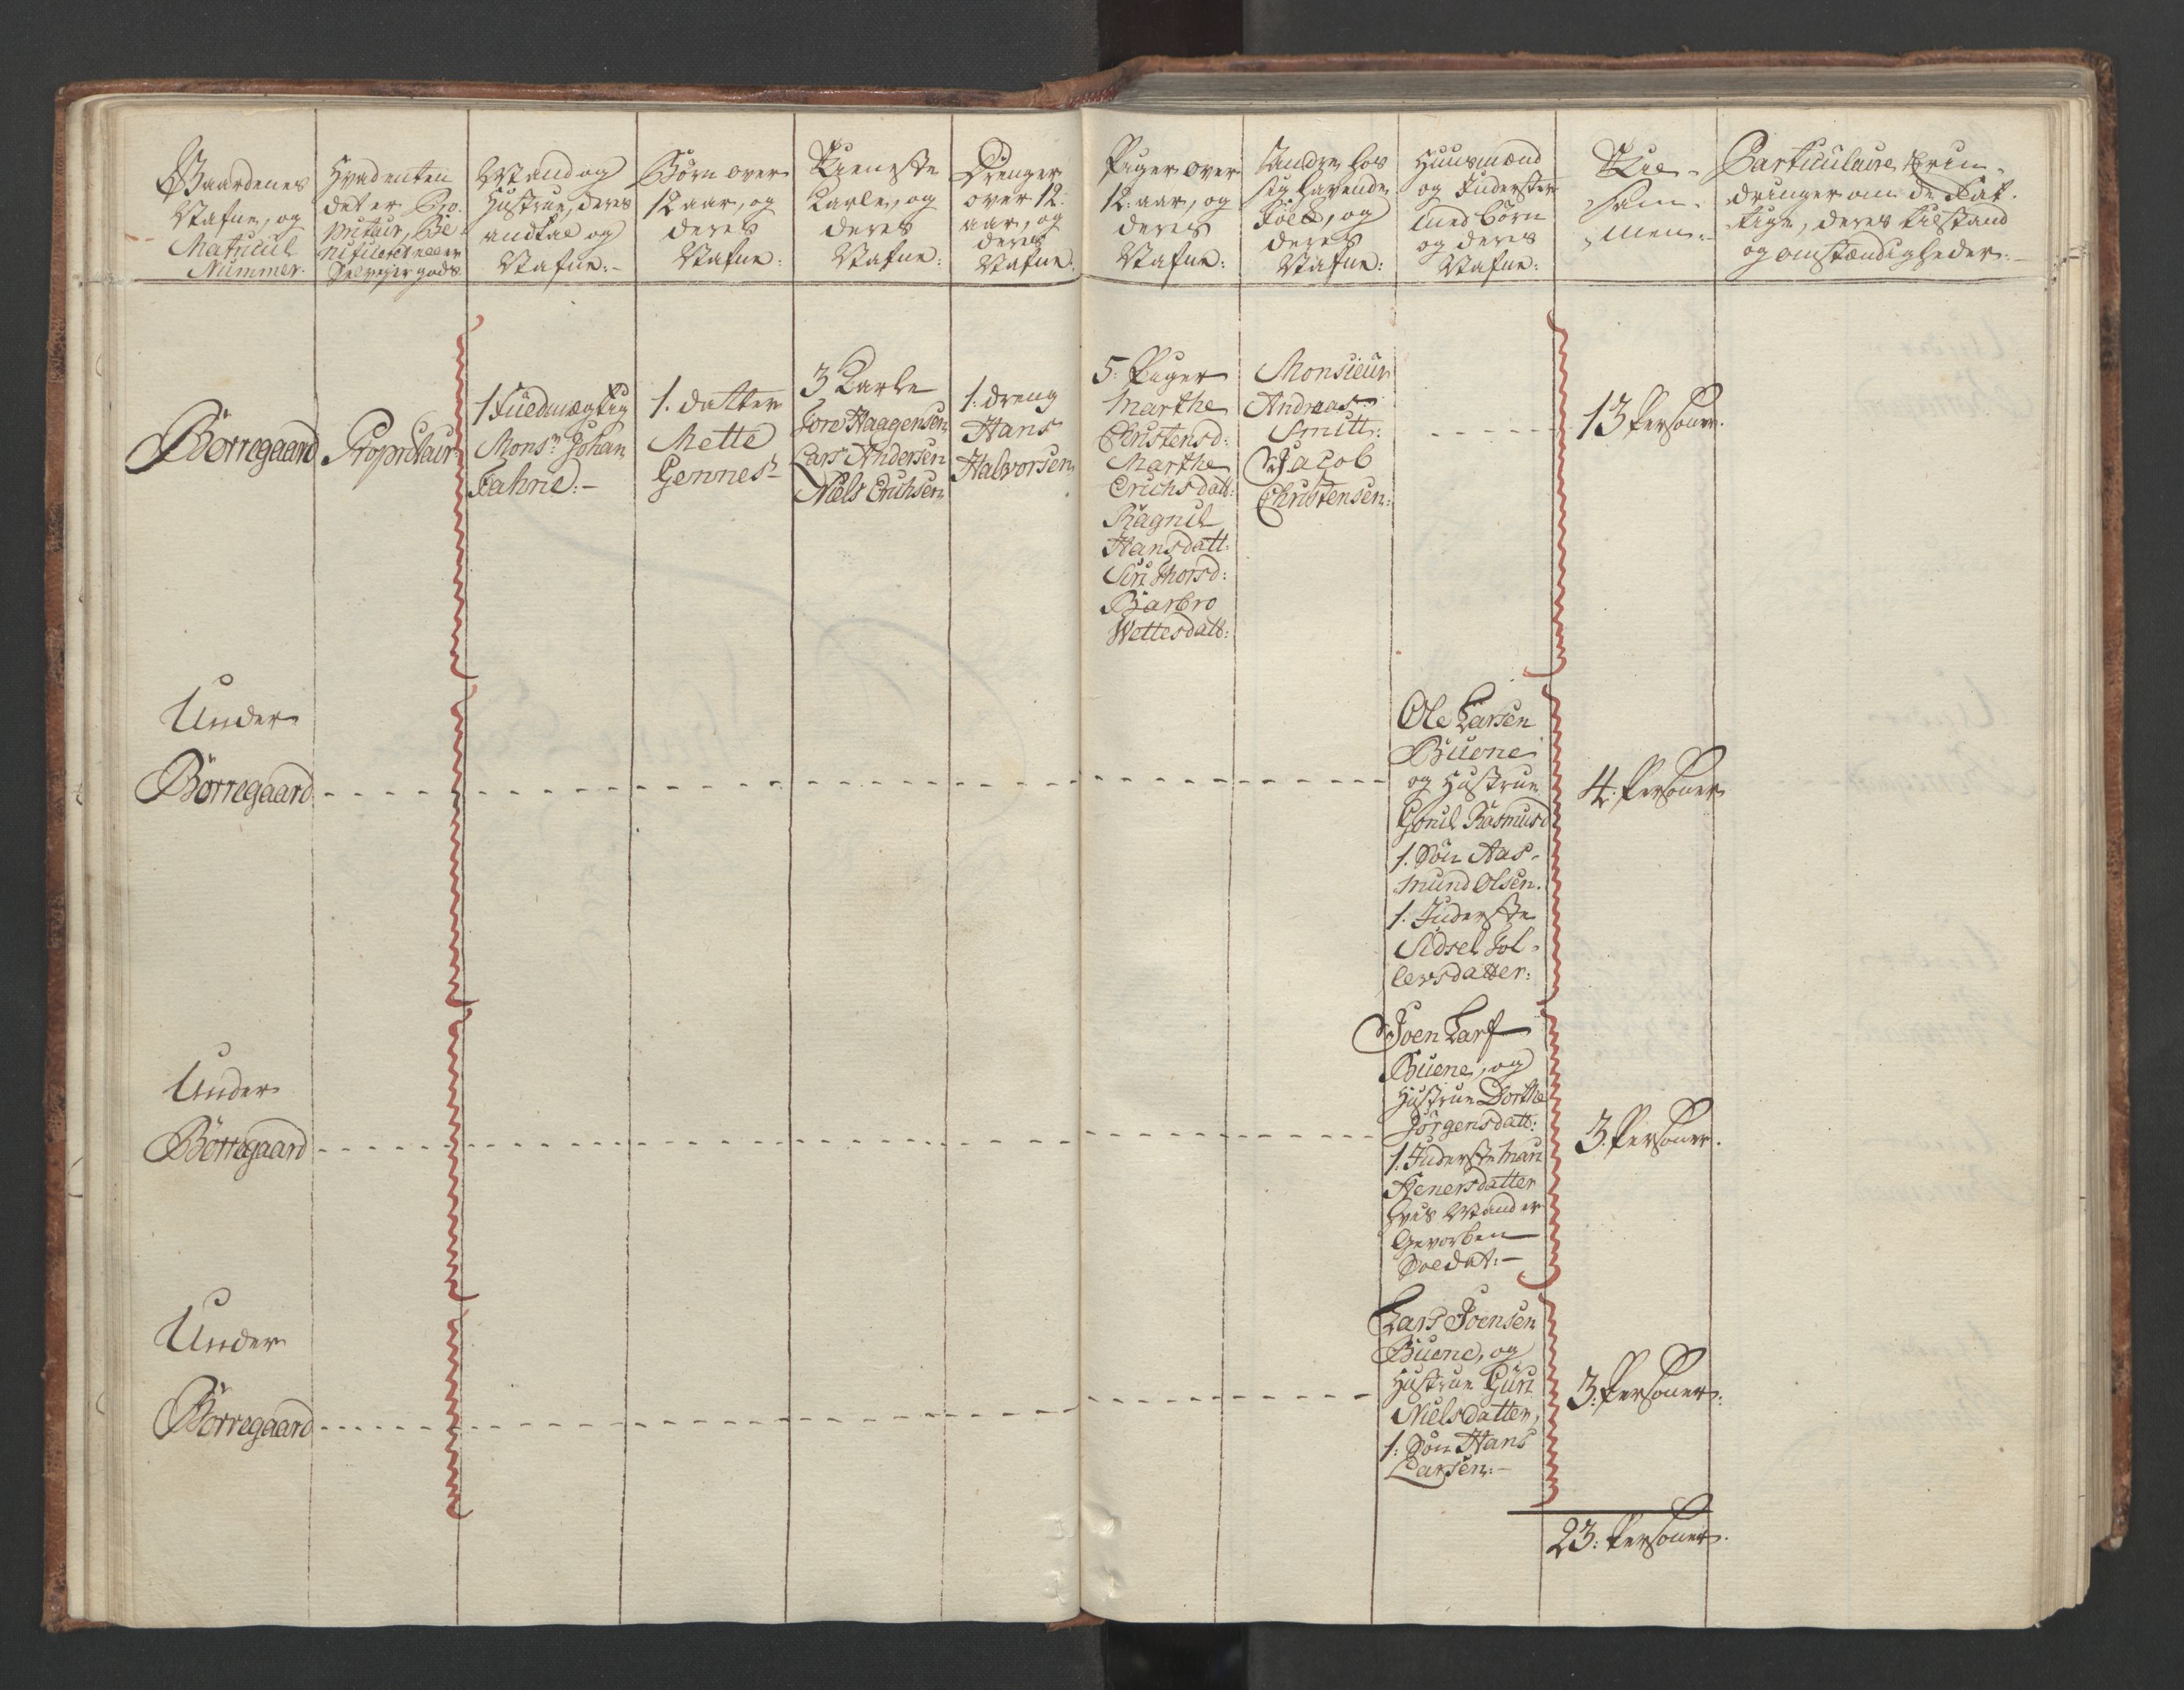 Gaardenes
Nafne, og
Matricul
Nummer.
Hvadenten
det er Pro-
prietair, Be-
neficeret eller
Selvejer gods.
Mand og
Hustrue, deres
andtal og
Nafne:-
Børn over
12 aar, og
deres
Nafne:
Tieneste
Karle, og
deres
Nafne:
Drenger
over 12:
aar, og
deres
Nafne:
Piger over
12: aar, og
deres
Nafne:
Andre hos
sig havende
Folck, og
deres
Nafne:
Huusmænd
og Inderster
med Børn
og deres
Nafne:
Til-
sam-
men:
Particulaire Erin-
dringer om de Fat-
tige, deres tilstand
og omstændigheder:-
Börregaard
Proprietair
1 Fuldmægtig
Mons.r Johan
Fahne:-
1. datter
Mette
Gennes-
3 Karle
Tore Haagensen
Lars Andersen
Niels Erichsen
1: dreng
Hans
Halvorsen
5: Piger
Marthe
Christensd:
Marthe
Erichsdatt:
Ragnil
Hansdatt:
Siri Thorsd:
Barbro
Wettesdatt:
Monsieur
Andreas
Smitt:
Jacob
Christensen:
13 Personer.
Under
Börregaard
Ole Larsen
Buene
og Hustrue
Gonil Rasmusd
1. Søn Aas-
mund Olsen.
1. Inderste
Sidsel Tol-
levsdatter:
4. Personer
Under
Börregaard
Joen Larf
Buene, og
Hustrue Dorthe
Jörgensdatt:
1. Inderste Mari
Henersdatter
hvis Mand er
Gevorben
Soldat:-
3. Personer.
Under
Börregaard
Lars Joensen
Buene, og
Hustrue Guri
Nielsdatter,
1: Søn Hans
Larsen:-
3. Personer:
23: Personer.